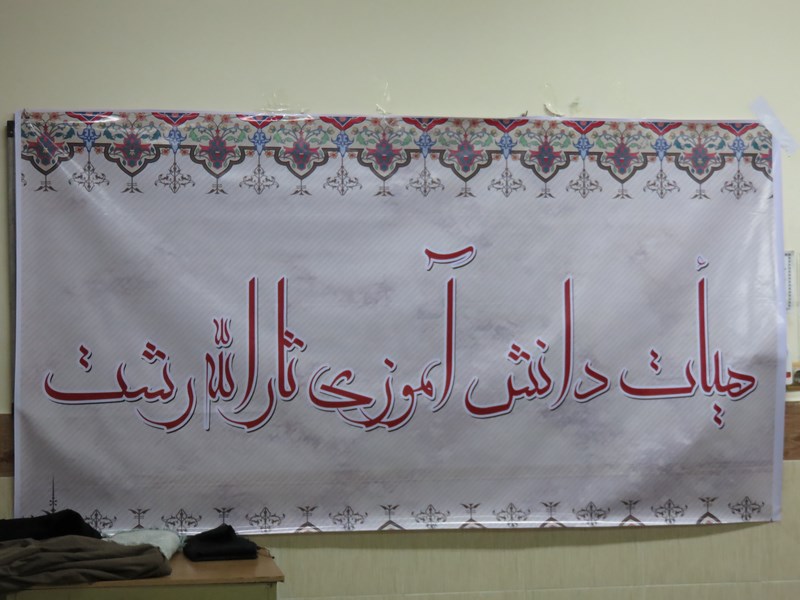 هیأت دانش آموزی ثارالله رشت